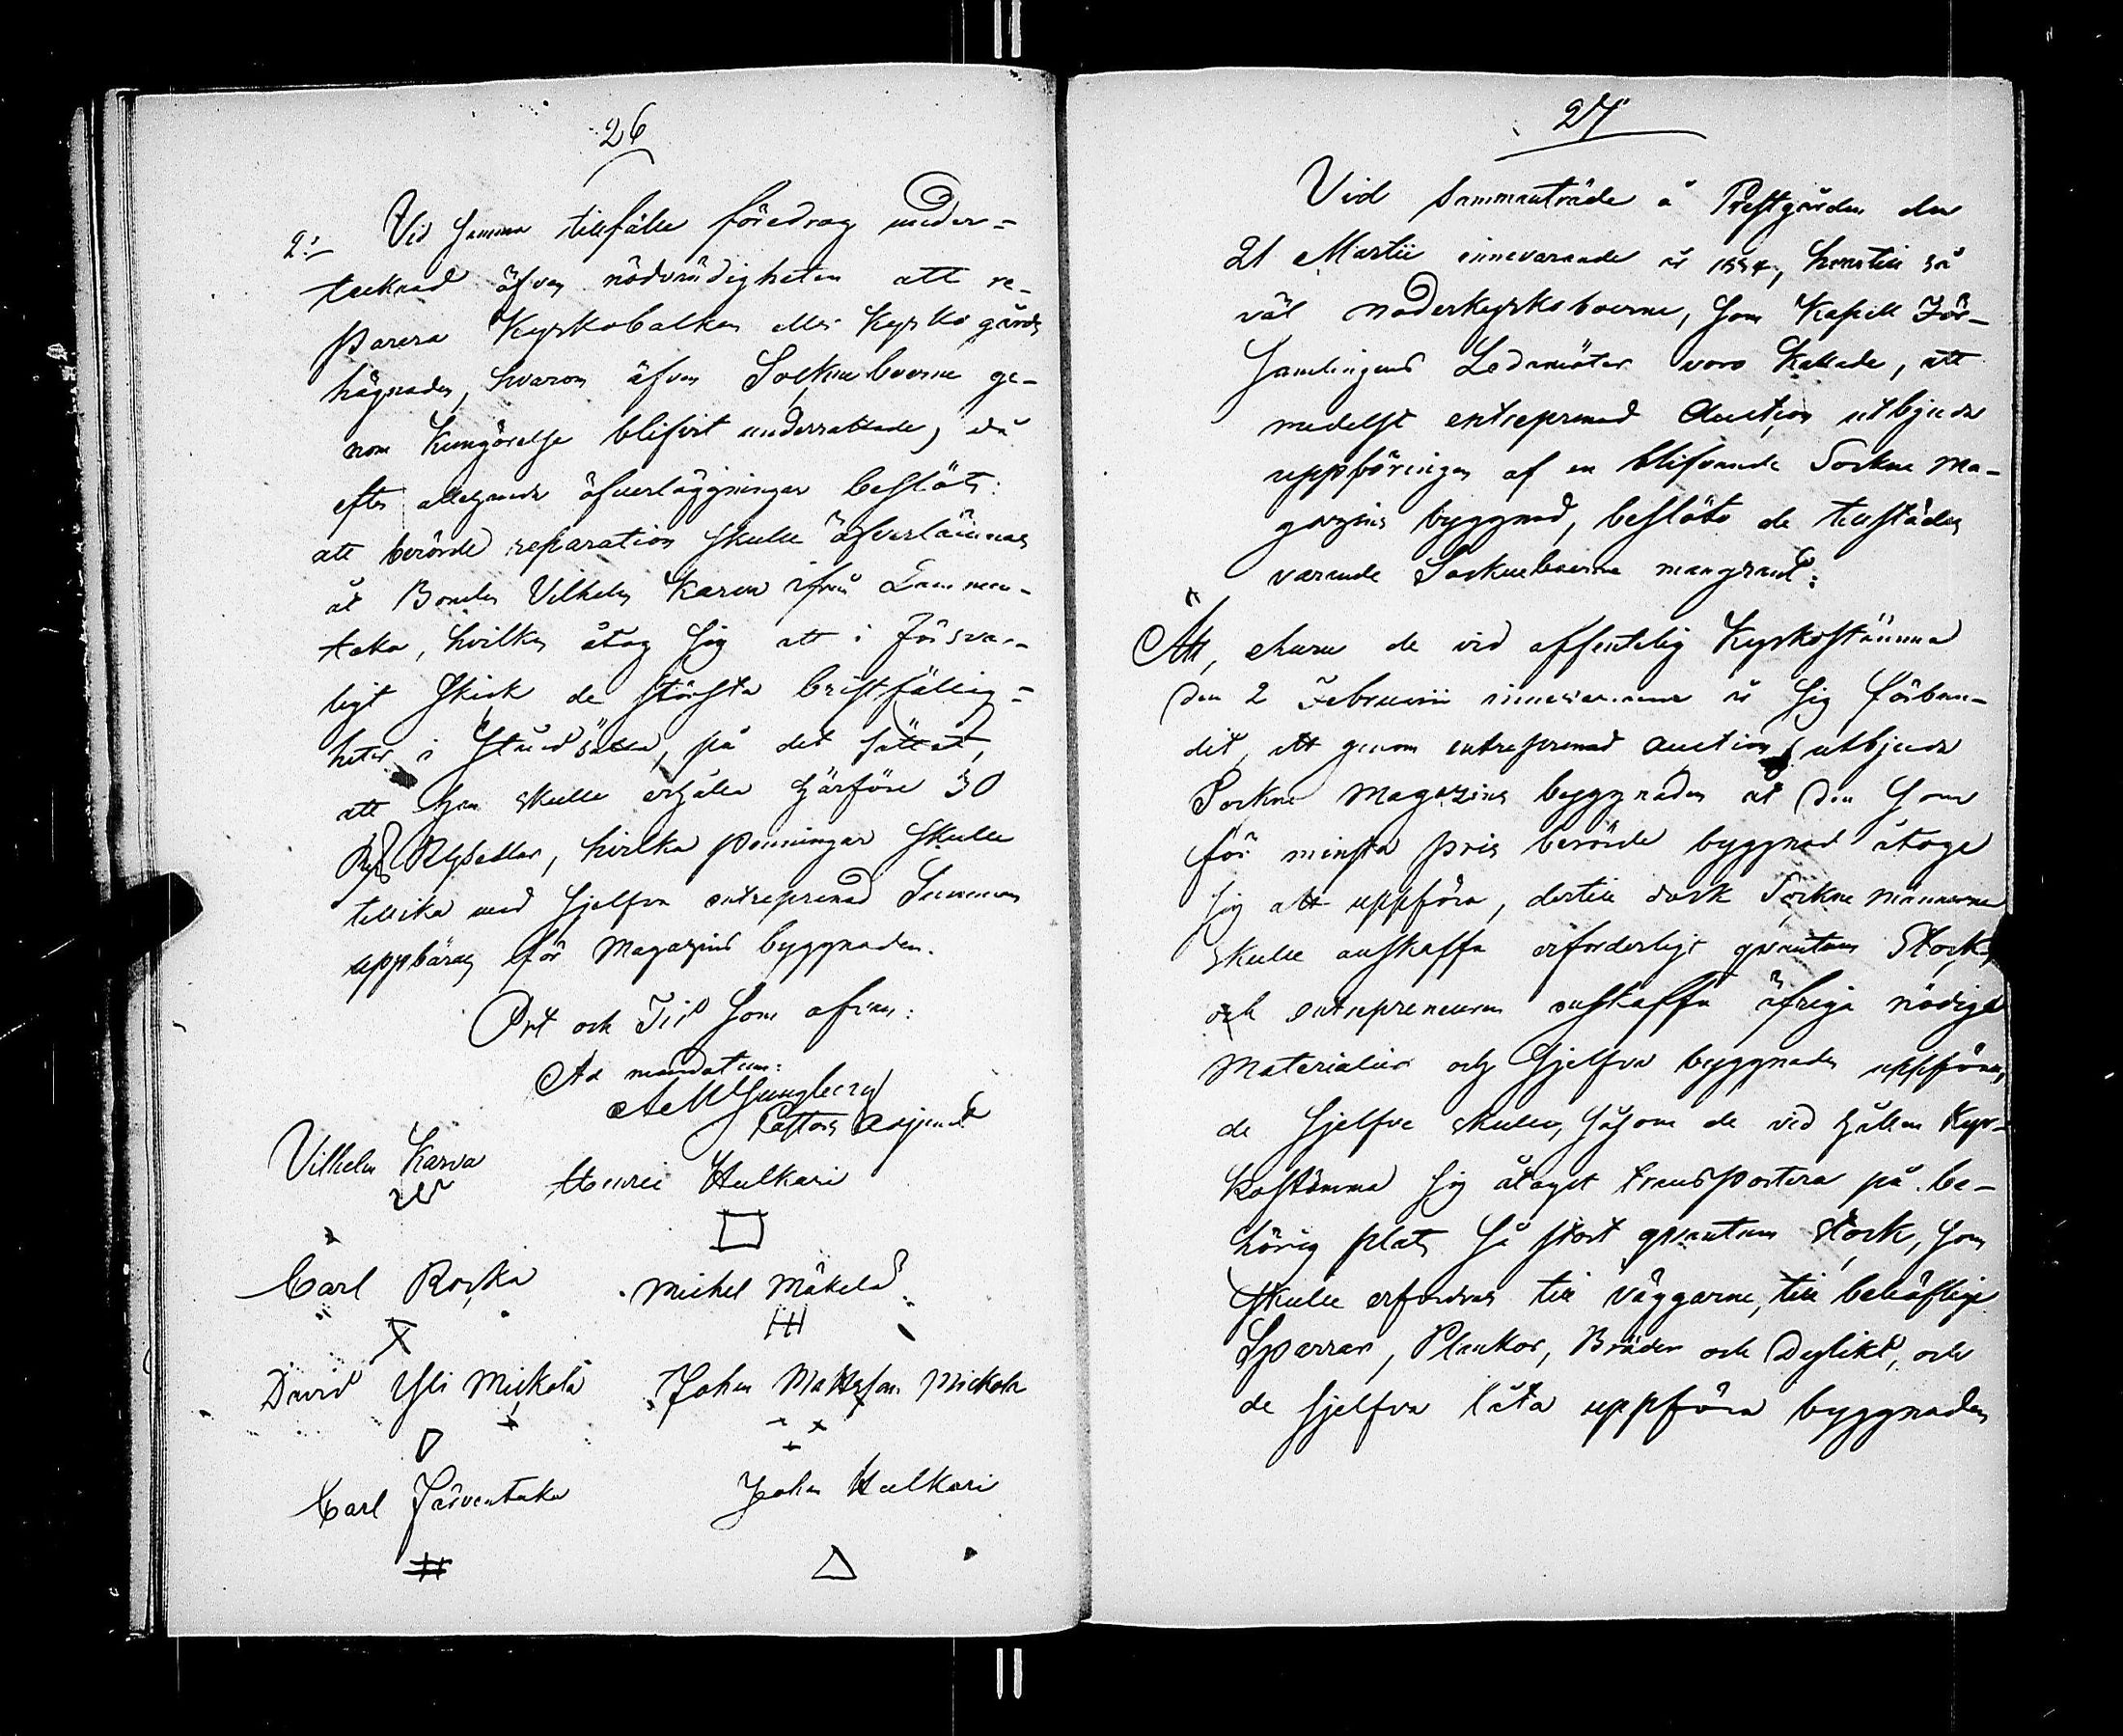 26
2:- Vid samma tillfälle föredrog under-
tecknad äfven nödvändigheten att re-
parera Kyrkobalken eller Kyrko gårds
hägnaden, hvarom äfven Socknuboerne ge-
nom kungörelse blifvit underrättade, då
efter öfverläggningar beslöts:
att berörde reparation skulle öfverlämnas
åt Bonden Vilhelm Karva ifrån Lammen-
taka, hvilken åtog sig att i försvar-
ligt skick de största bristfällig-
heter i stånd sätta, på det sättet,
att han skulle erhålla härföre 30
Rub Rysedlar, hvilka penningar skulle
tillika med sjelfva entreprenad Summan
uppbäras för Magazins byggnaden.
Ort och Tid som ofvan:
Ad mandatum:
A M Ljungberg
Pastors Adjunct
Vilhelm Karva Henric Hulkari
Carl Roska Michel Mäkelä
David Yli Mickola Johan Mattsson Mickola
Carl Järventaka Johan Hulkari
27
Vid Sammanträde å Prestgården den
21 Martii innevarande år 1854, hvartill så
väl moderkyrkoboerne, som Kapell För-
samlingens Ledamöter voro kallade, att
medelst entreprenad Auction utbjuda
uppföringen af en blifvande Sockne ma-
gazins byggnad, beslöto de tillstädes
varande Socknuboerne mangrant:
Att, ehuru de vid offentelig Kyrkostämma
den 2 Februarii innevarande år sig förbun-
dit, att genom entreprenad auction utbjuda
Sockne Magazins byggnaden åt den som
för minsta pris berörde byggnad åtoge
sig att uppföra, dertill dock Sockne männerne
skulle anskaffa erforderligt qvantum Stock,
och entrepreneuren anskaffa öfriga nödiga
Materialier och sjelfva byggnaden uppföra,
de sjelfve skulle, såsom de vid hållen Kyr-
kostämma sig åtaget transportera på be-
hörig plats så stort qvantum stock, som
skulle erfordras till väggarne, till behöflige
Sparrar, Plankor, Bräder och Dylikt, och
de sjelfva låta uppföra byggnaden